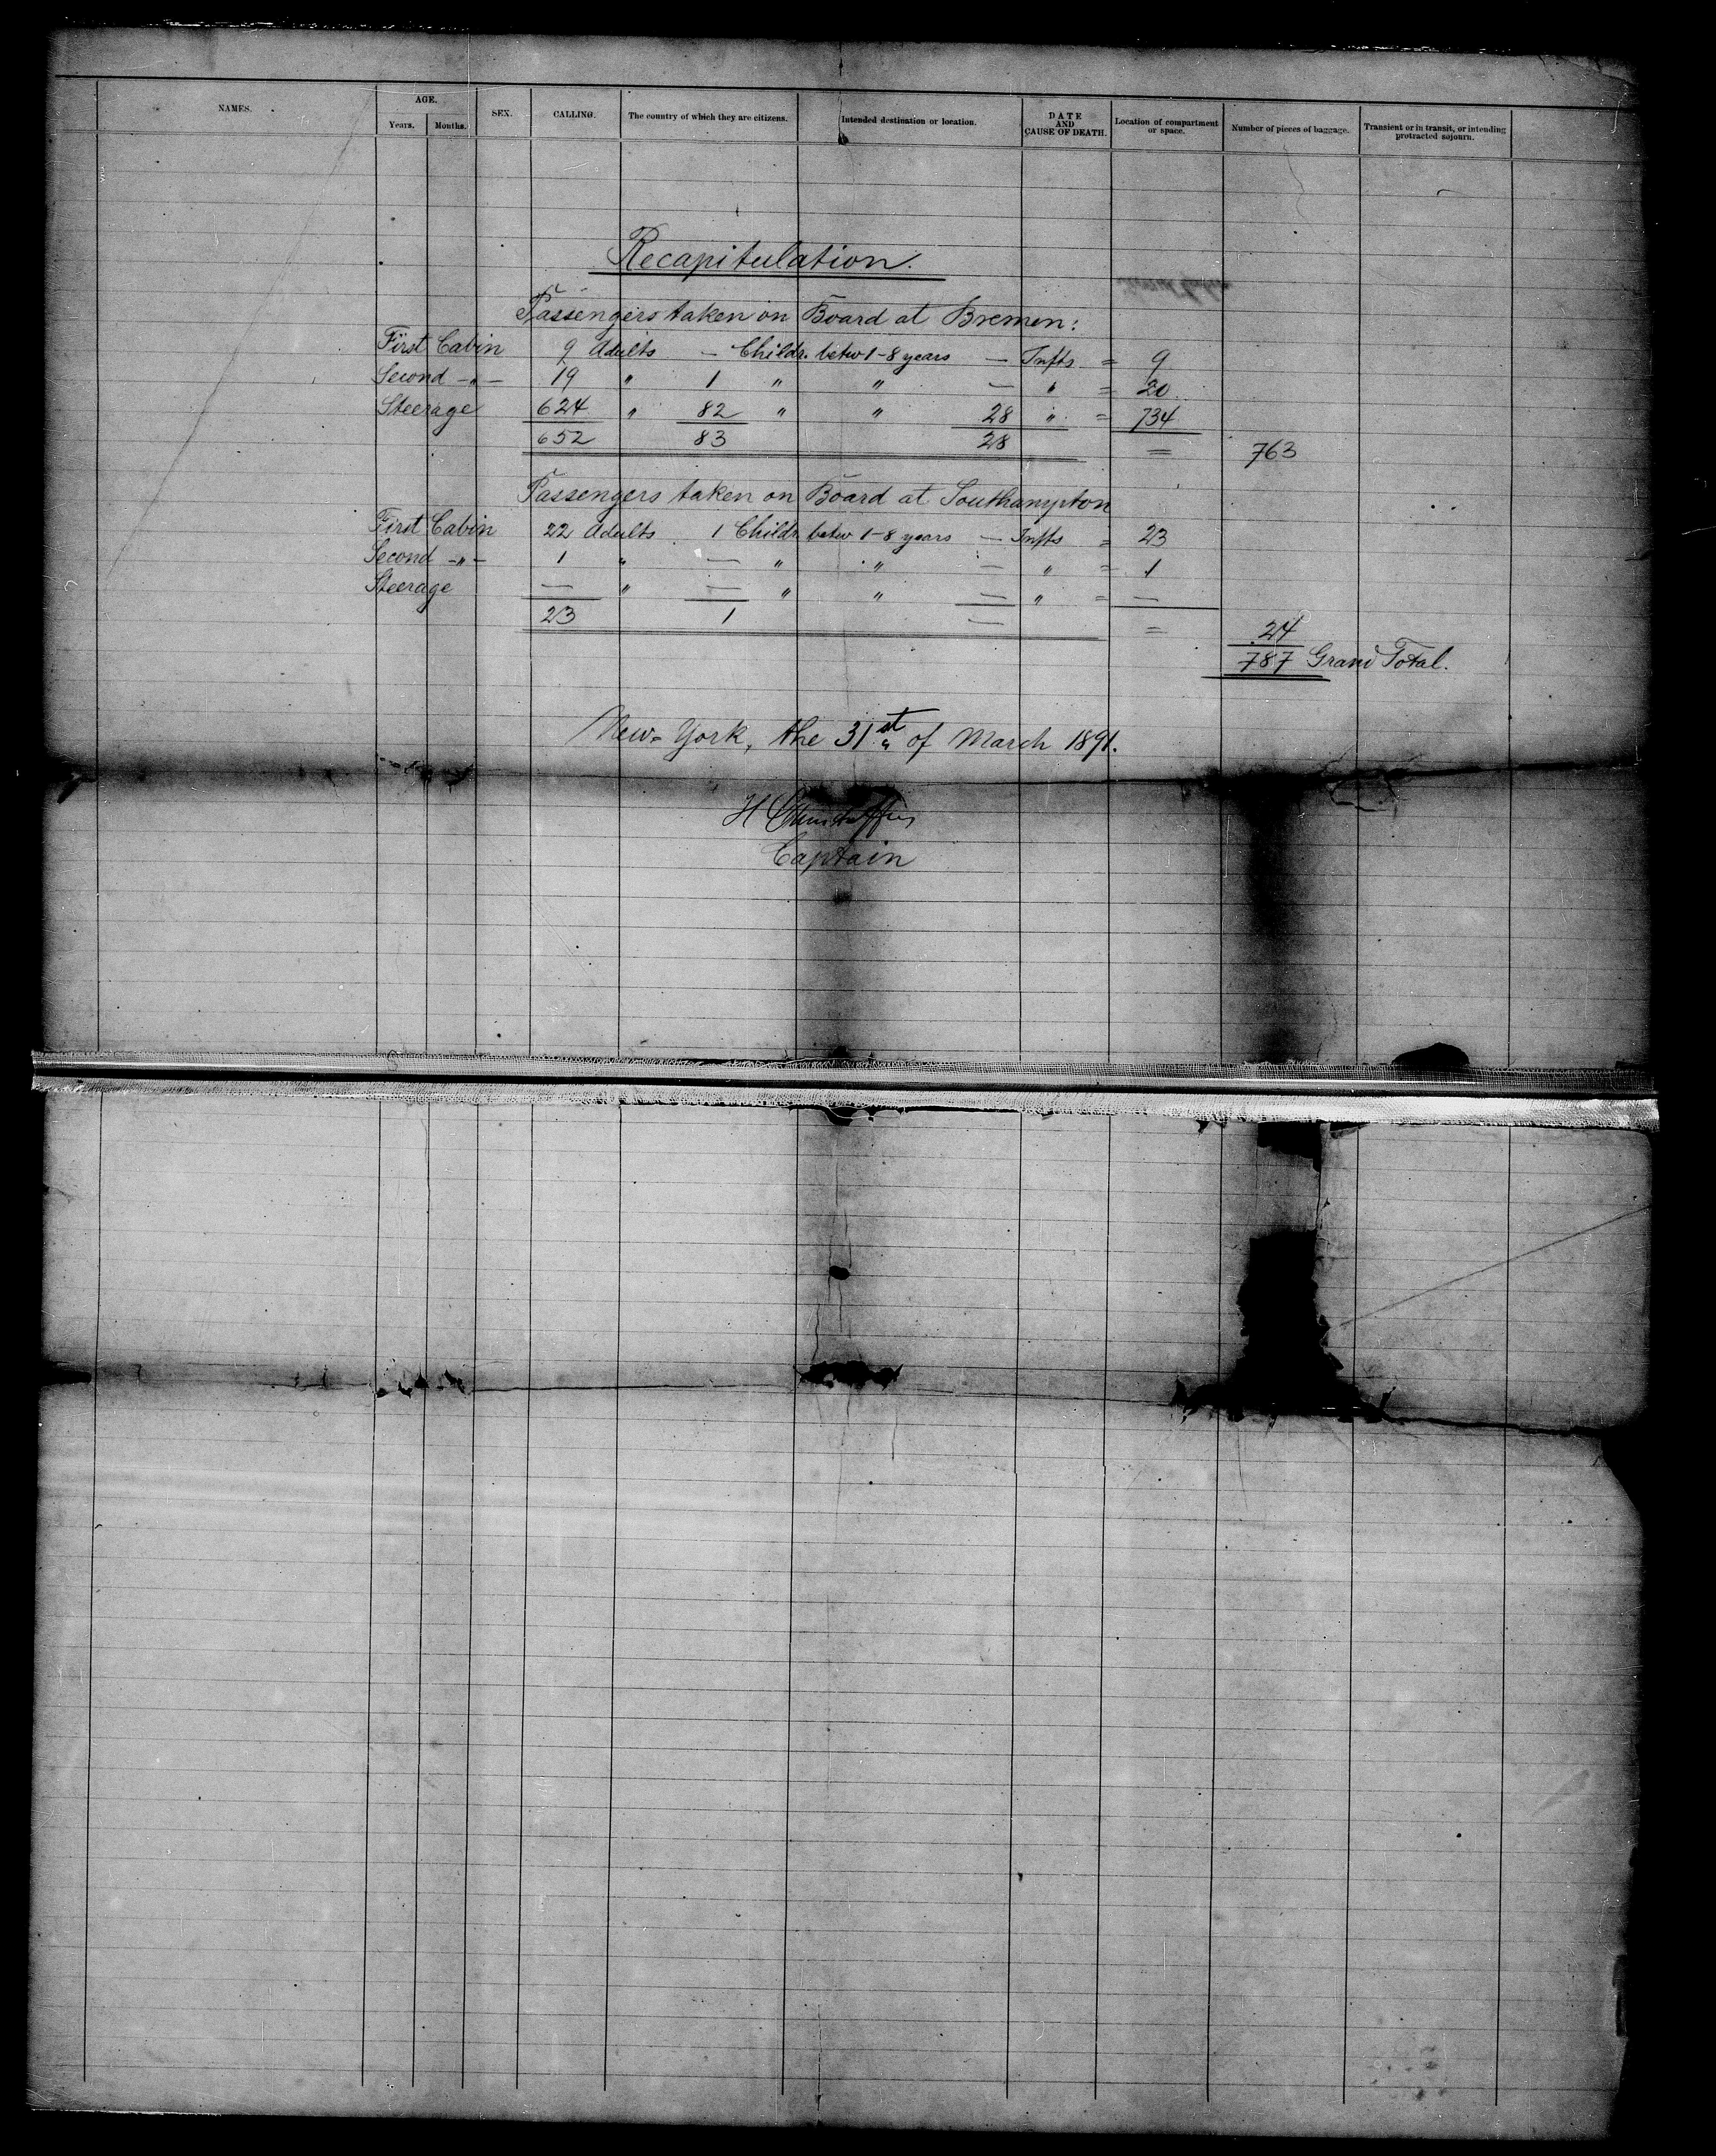 NAMES. AGE. SEX. CALLING. The country of which they are citizens. Intended destination or location. DATE AND CAUSE OF DEATH. Location of compartment or space. Number of pieces of baggage. Transient or in transit, or intending protracted sojourn.
Years. Months.
Recapitulation.
Passengers taken on Board at Bremen:
First Cabin 9 Adults — Childr. betw 1-8 years — Infts = 9
Second -"- 19 " 1 " " — " = 20
Steerage 624 " 82 " " 28 " = 734
652 83 28 = 763
Passengers taken on Board at Southampton
First Cabin 22 Adults 1 Childr. betw 1-8 years — Infts = 23
Second -"- 1 " — " " — " = 1
Steerage — " — " " — " = —
23 1 — = 24
787 Grand Total.
New-York, the 31st of March 1891.
H
Captain